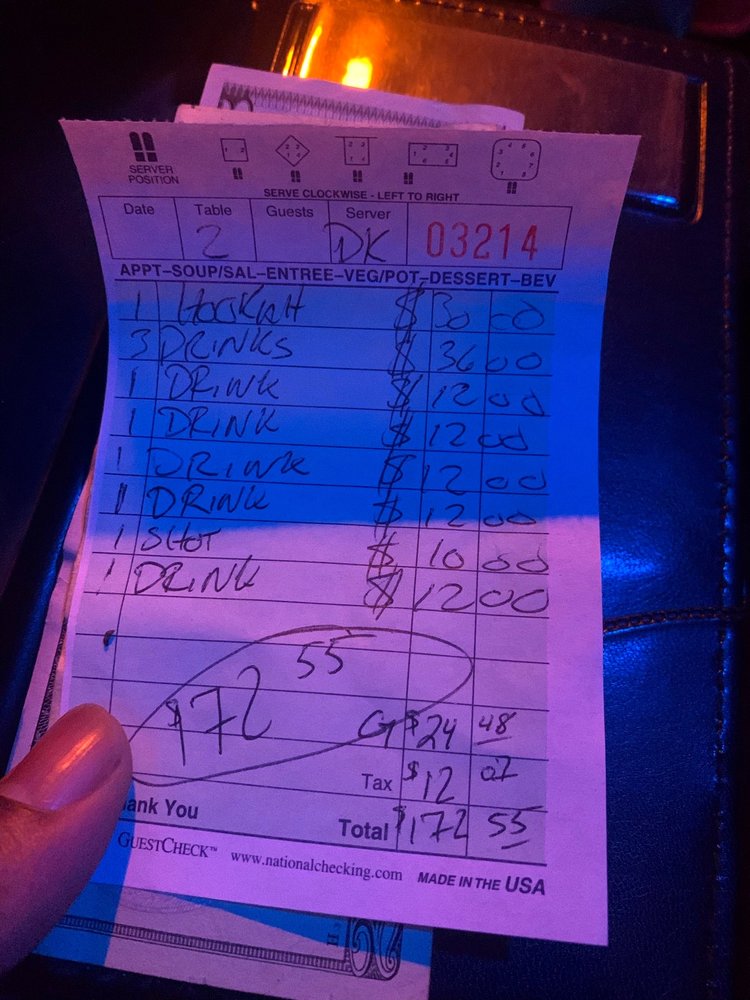 SERVER POSITION
SERVE CLOCKWISE - LEFT TO RIGHT
Date Table Guests Server 03214
2 DK
APPT–SOUP/SAL–ENTREE–VEG/POT–DESSERT–BEV
1 HOOKAH $ 30 00
3 DRINKS $ 36 00
1 DRINK $ 12 00
1 DRINK $ 12 00
1 DRINK $ 12 00
1 DRINK $ 12 00
1 SHOT $ 10 00
1 DRINK $ 12 00
$172 55
G $24 48
Tax $12 07
ank You Total $172 55
GUESTCHECK™ www.nationalchecking.com MADE IN THE USA